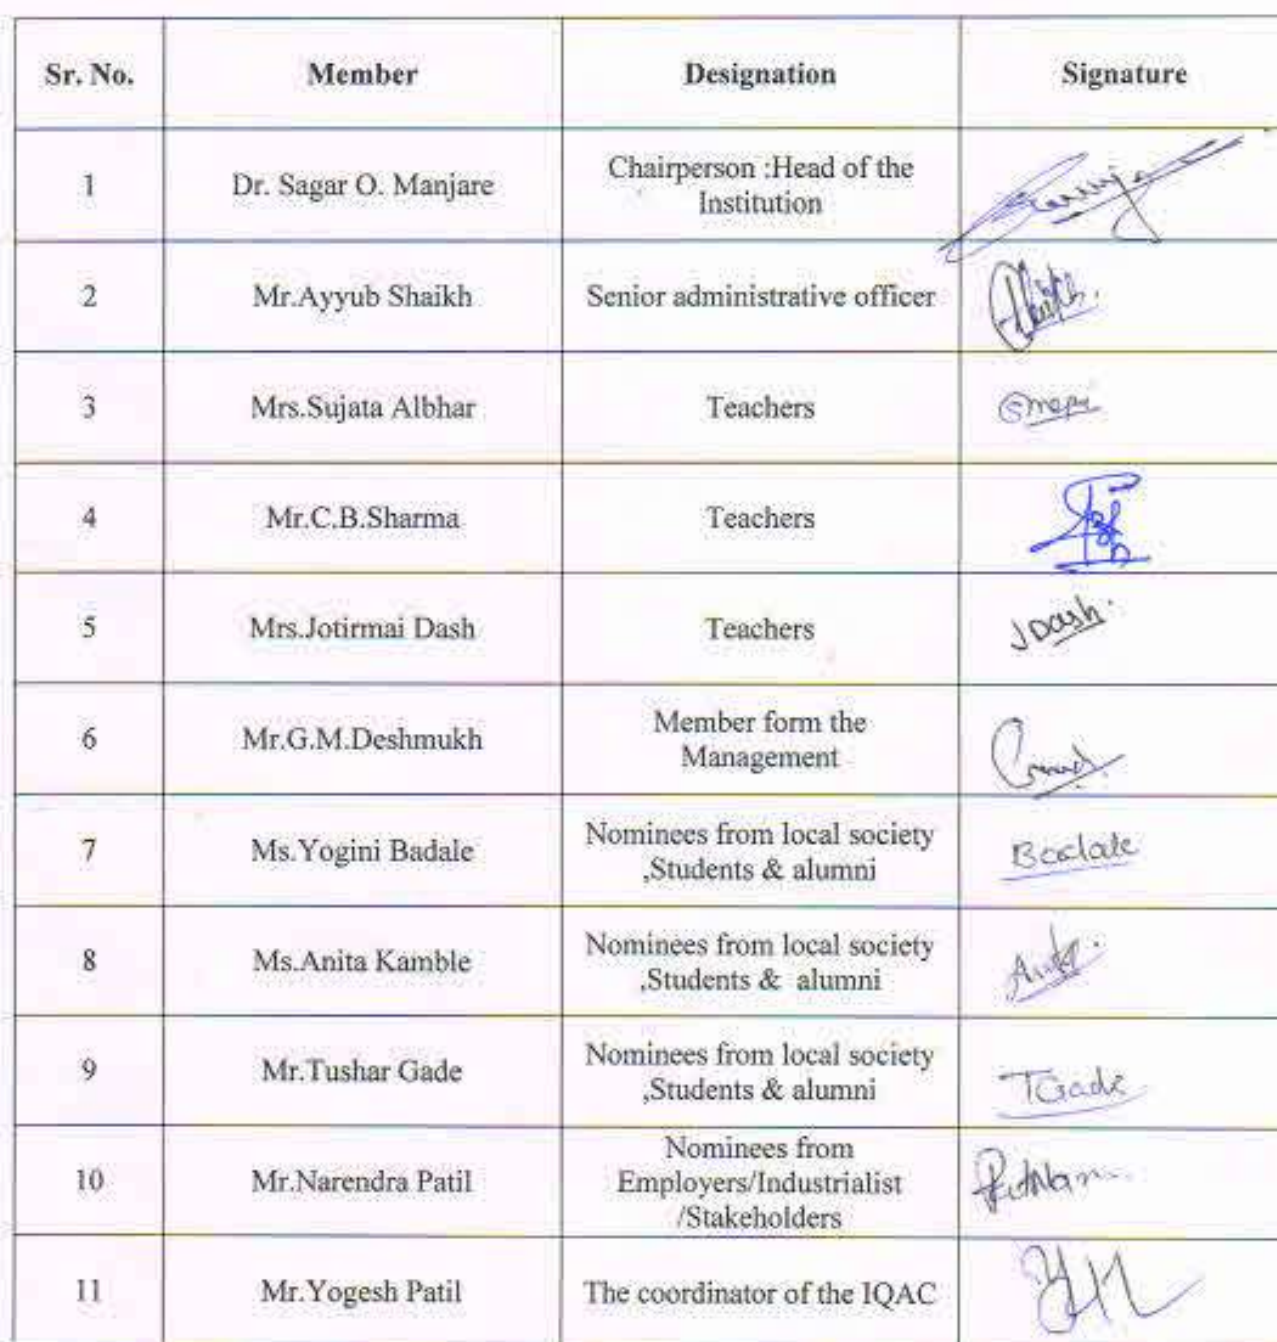 Sr. No. Member Designation Signature
1 Dr. Sagar O. Manjare Chairperson :Head of the
Institution
2 Mr.Ayyub Shaikh Senior administrative officer
3 Mrs.Sujata Albhar Teachers
4 Mr.C.B.Sharma Teachers
5 Mrs.Jotirmai Dash Teachers JDash.
6 Mr.G.M.Deshmukh Member form the
Management
7 Ms.Yogini Badale Nominees from local society
,Students & alumni Badale
8 Ms.Anita Kamble Nominees from local society
,Students & alumni
9 Mr.Tushar Gade Nominees from local society
,Students & alumni TGade
10 Mr.Narendra Patil Nominees from
Employers/Industrialist
/Stakeholders
11 Mr.Yogesh Patil The coordinator of the IQAC